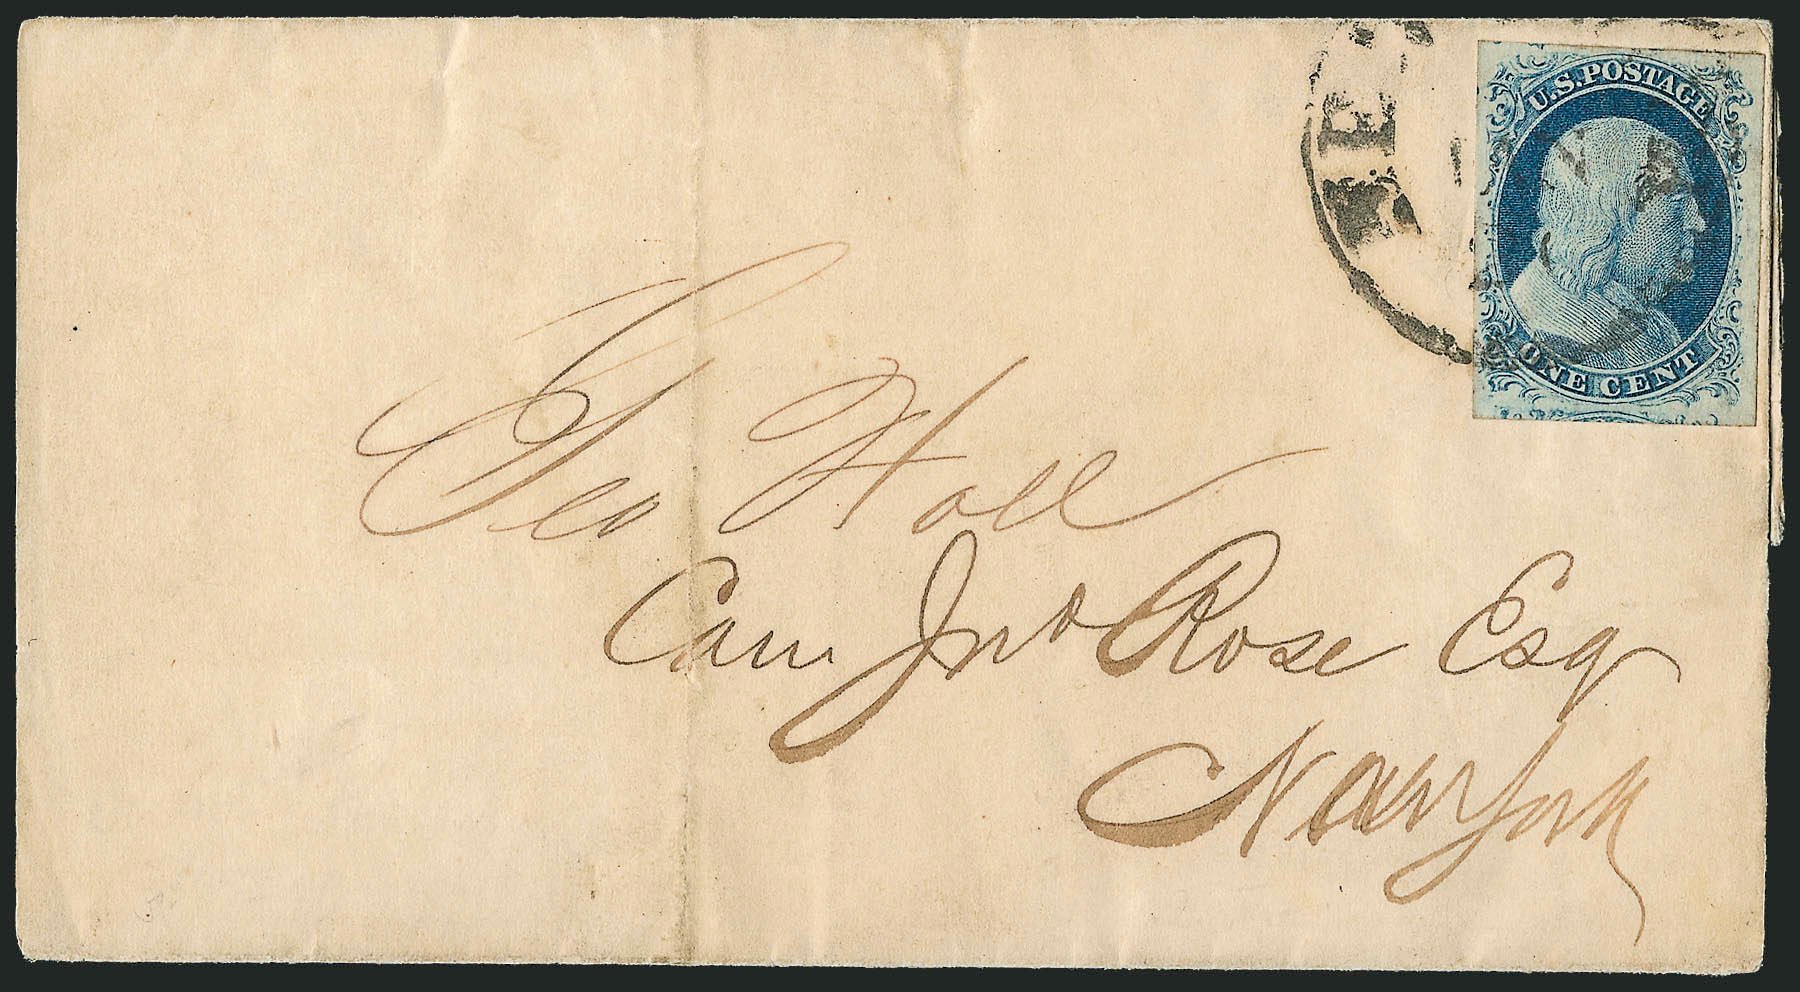 U.S. POSTAGE
ONE CENT
Geo Hall
Care Jno Rose Esq
New York